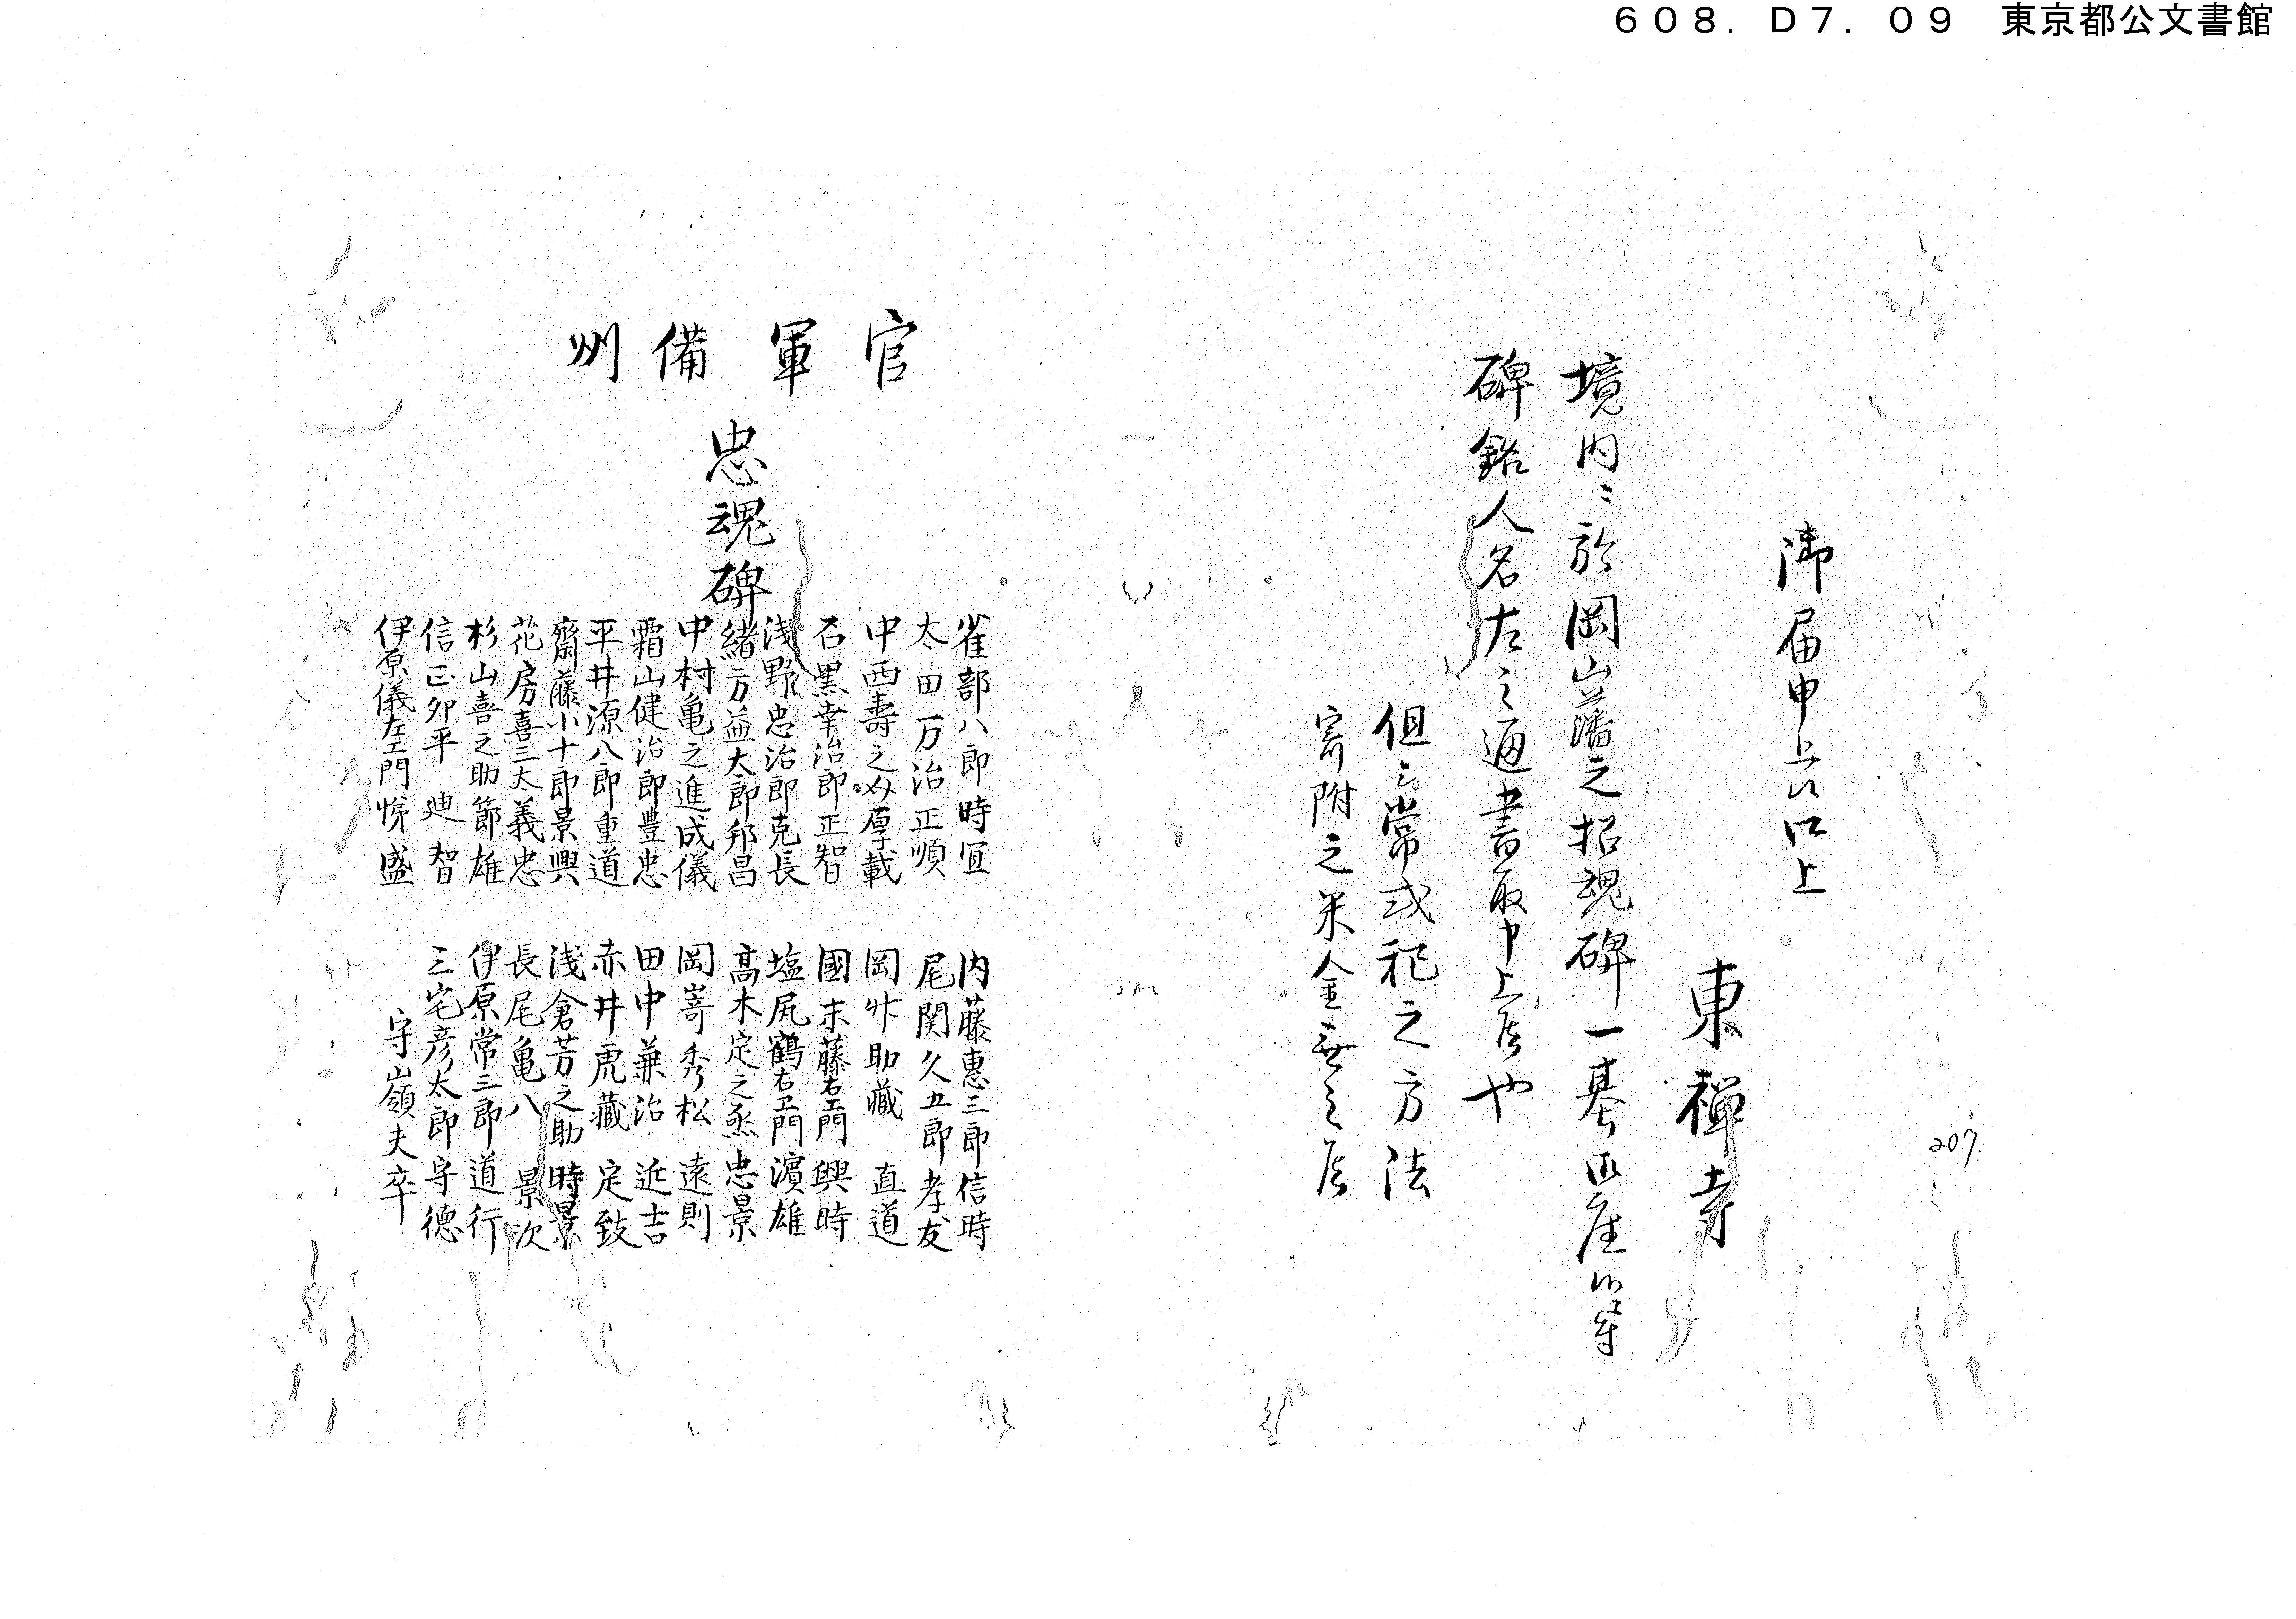 608. D7. 09 東京都公文書館
御届申上候口上
東禅寺
207.
境内ニ於岡山藩之招魂碑一基御座候
碑銘人名左之通書取申上候也
但シ常或祀之方法
寄附之米金無之候
官軍備州
忠魂碑
雀部八郎時宜
太田万治正順
中西壽之𠀋厚載
石黒幸治郎正智
浅野忠治郎克長
緒方益太郎邦昌
中村亀之進成儀
霜山健治郎豊忠
平井源八郎重道
齋藤小十郎景興
花房喜三太義忠
杉山喜之助節雄
信正卯平 廸智
伊原儀左エ門惇盛
内藤惠三郎信時
尾関久五郎孝友
岡 助藏 直道
國末藤右エ門興時
塩尻鶴右エ門濵雄
髙木定之丞忠景
岡嵜秀松 遠則
田中兼治 近吉
赤井虎藏 定致
浅倉芳之助時景
長尾亀八 景次
伊原常三郎道行
三宅彦太郎守德
守嶺夫卒